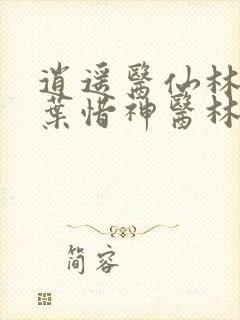 逍遥醫仙林
葉惜神醫林
简容